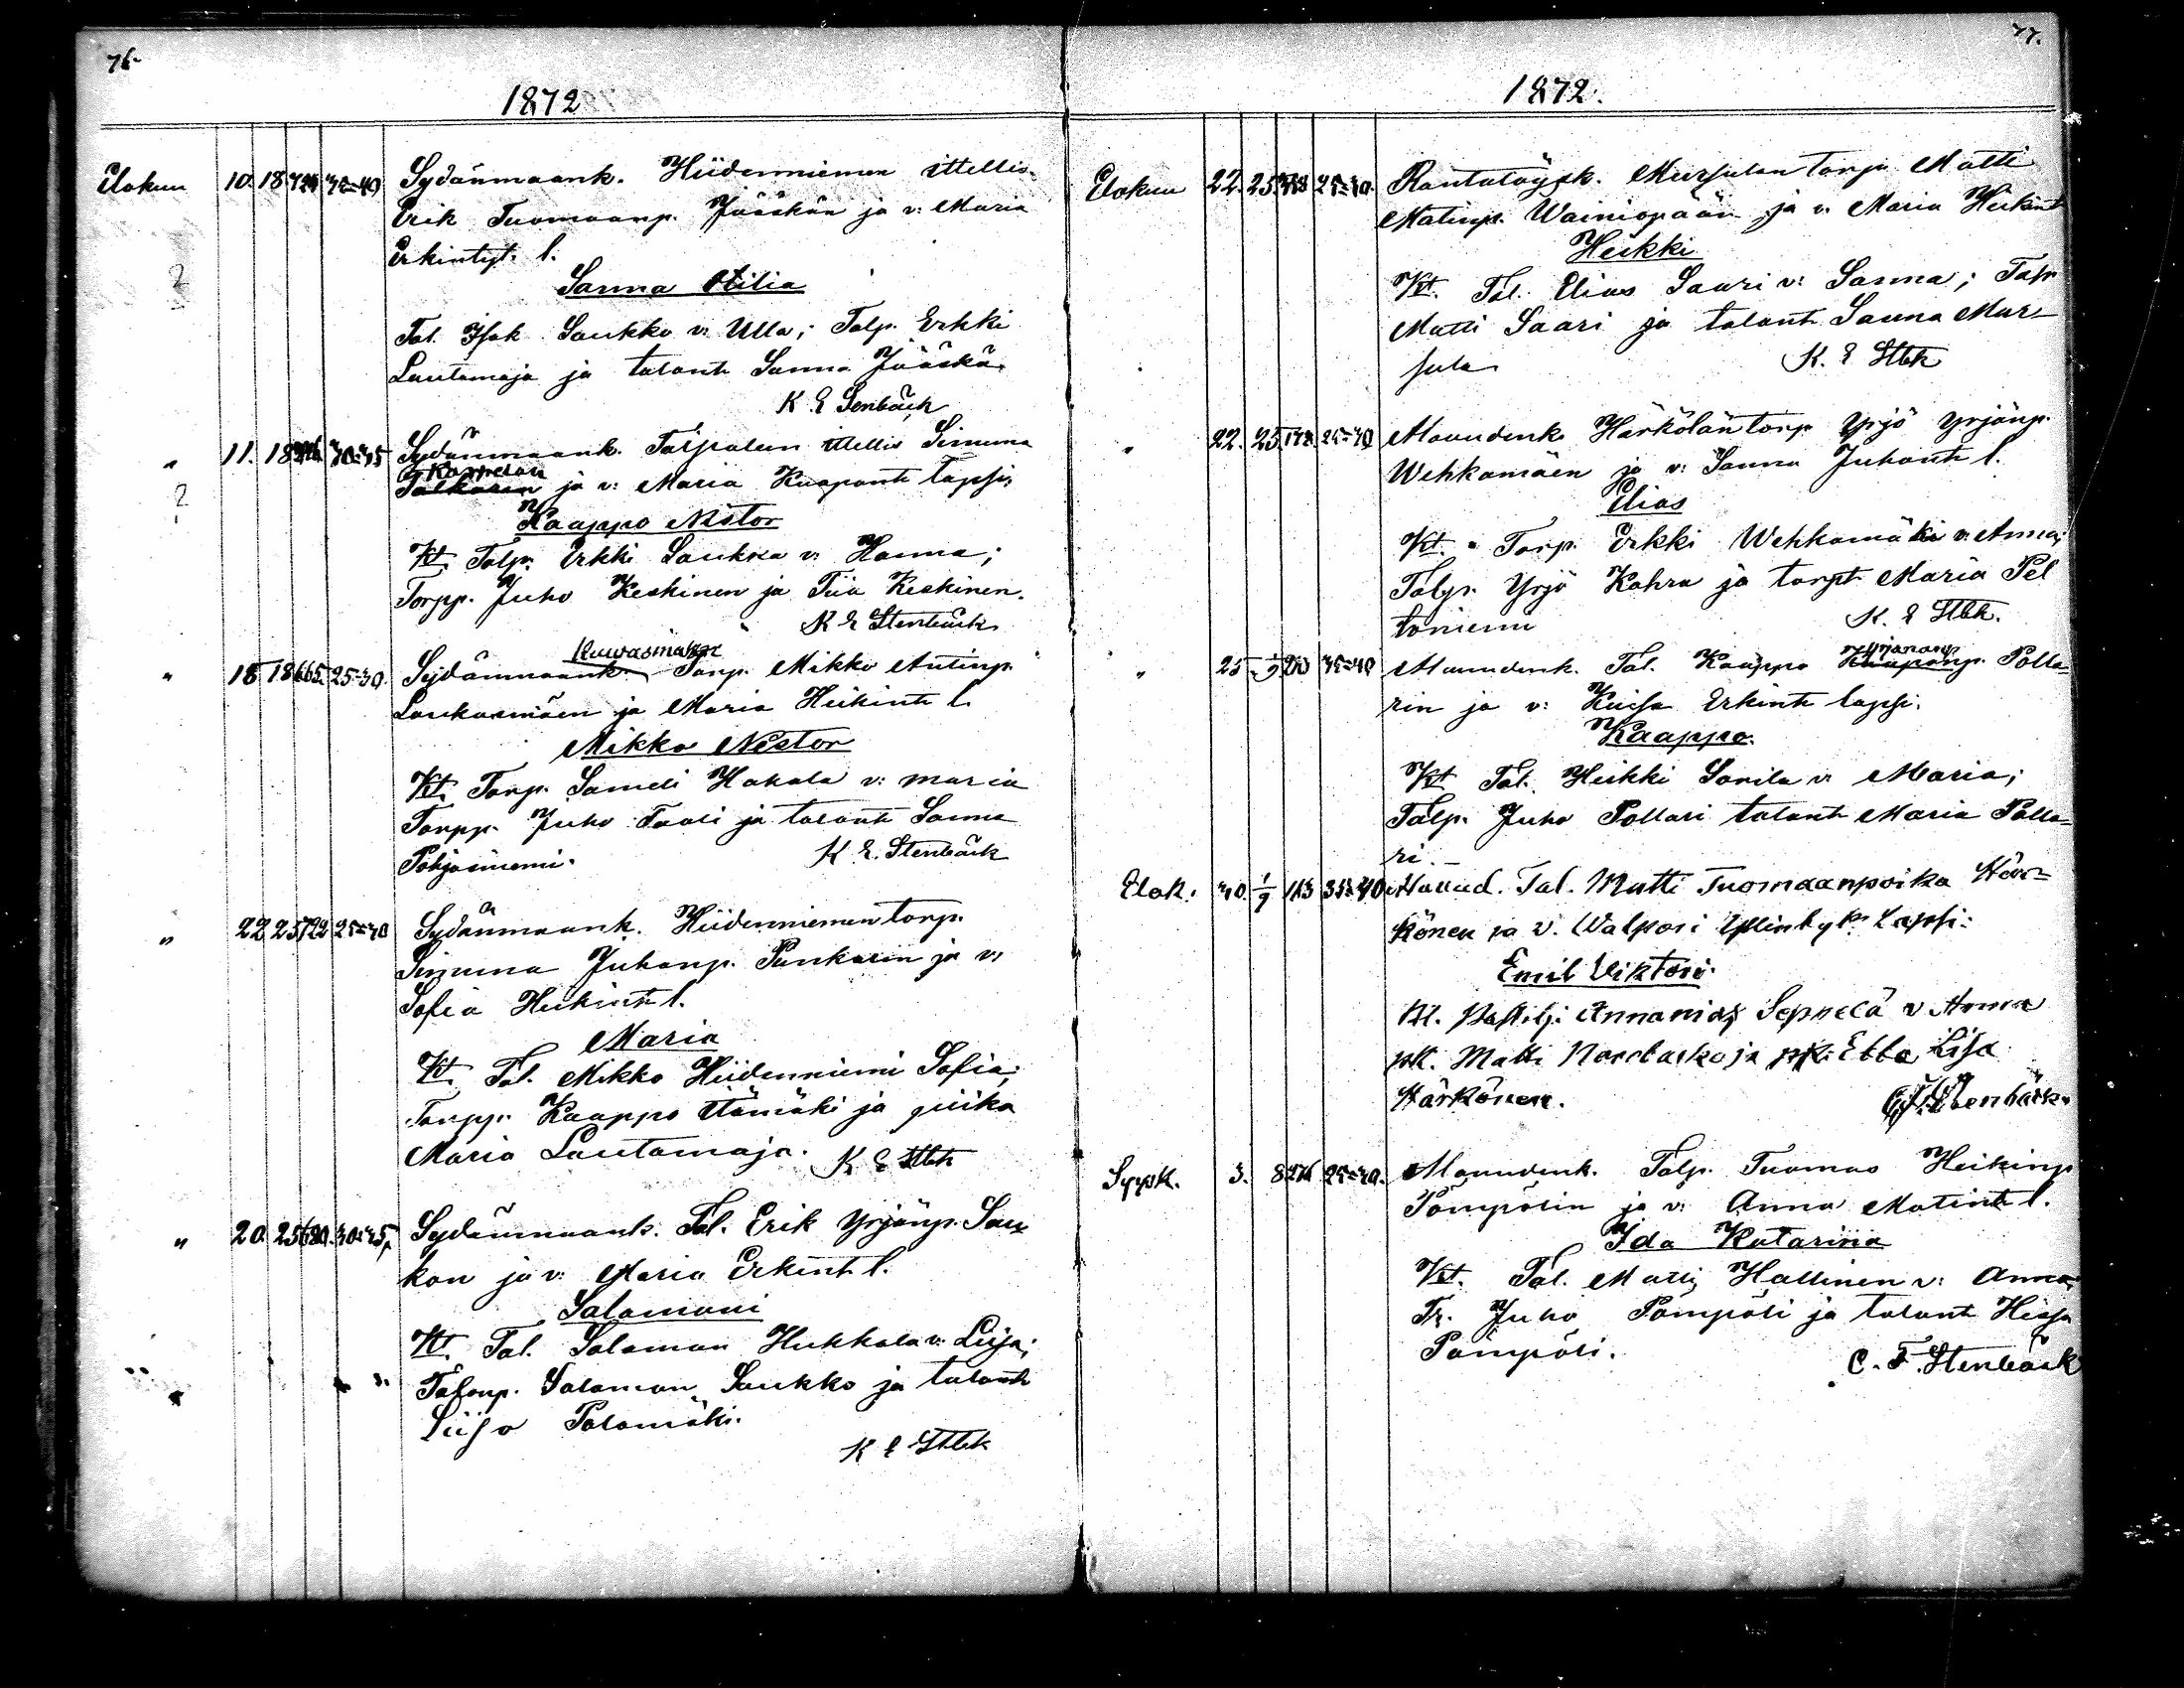 76
1872
Elokuu 10. 18 Sydänmaank. Hiidenniemen ittellis.
Erik Tuomaanp. Jääskän ja v: Maria
Erkintyt. l.
Sanna Otilia
Tal. Isak Saukko v: Ulla; Talp. Erkki
Lautamaja ja talont. Sanna Jääskä.
K E Stenbäck
" 11. 18 30=35 Sydänmaank. Taipaleen ittellis Simuna
ja v: Maria Kaapont. lapsi,
Kaappo Nestor
Kt. Talp. Erkki Saukko v: Hanna;
Torpp. Juho Keskinen ja Tiia Keskinen.
K E Stenbäck
Kuwasmäen
" 18 18 665 25=30. Sydänmaank. Torp. Mikko Antinp.
Laukasmäen ja Maria Heikint. l.
Mikko Nestor
Kt. Torp. Sameli Hakala v: Maria
Torpp. Juho Taali ja talont. Sanna
Pohjasniemi. K E. Stenbäck
" 22 25 722 25=30 Sydänmaank. Hiidenniemen torp.
Simuna Juhanp. Punkarin ja v:
Sofia Heikint. l.
Maria
Kt. Tal. Mikko Hiidenniemi Sofia;
Torpp. Kaappo ja piika
Maria Lautamaja. K E Stbk
" 20. 25 690. 30=35, Sydänmaank. Tal. Erik Yrjönp. Sau
kon ja v: Maria Erkint. l.
Salomoni
Kt. Tal. Salomon Hukkala v: Liisa;
Talonp. Salomon Saukko ja talont.
Liisa Palomäki.
K E Stbk
77.
1872.
Elokuu 22. 25 25=30. Rantatöysk. Mursulan torp. Matti
Matinp. Wainiopään ja v. Maria Heikint
Heikki
Kt. Tal. Elias Saari v: Sanna; Talp.
Matti Saari ja talont. Sanna Mur-
sula K. E Stbk
" 22. 25. 25=30 Alavudenk. Härkölän torp. Yrjö Yrjönp.
Wehkamäen ja v: Sanna Juhont. l.
Elias
Kt. Torp. Erkki Wehkamäki v: Anna;
Talp. Yrjö Kahra ja torpt. Maria Pel
toniemi K. E Stbk.
Yrjönanp
" 25 35=40 Alavudenk. Tal. Kaappo Kaaponp. Polla=
rin ja v: Kaisa Erkint. lapsi.
Kaappo.
Kt Tal. Heikki Sorila v: Maria;
Talp. Juho Pollari talont. Maria Polla=
ri.
Elok. 30. 1/9 113 35=40 Alavud. Tal. Matti Tuomaanpoika Här=
könen ja v. Walpori Lapsi:
Emil Viktori.
Kt. Annanias Seppelä v Anna
pk. Matti ja pk. Lisa
Härkönen. Stenbäck
Syysk. 3. 8 25=30. Alavudenk. Talp. Tuomas Heikinp
Pömpölin ja v: Anna Matint. l.
Ida Katariina
Kt. Tal. Matti Hallinen v: Anna;
Tr. Juho Pömpöli ja talont.
Pömpöli. C. F. Stenbäck